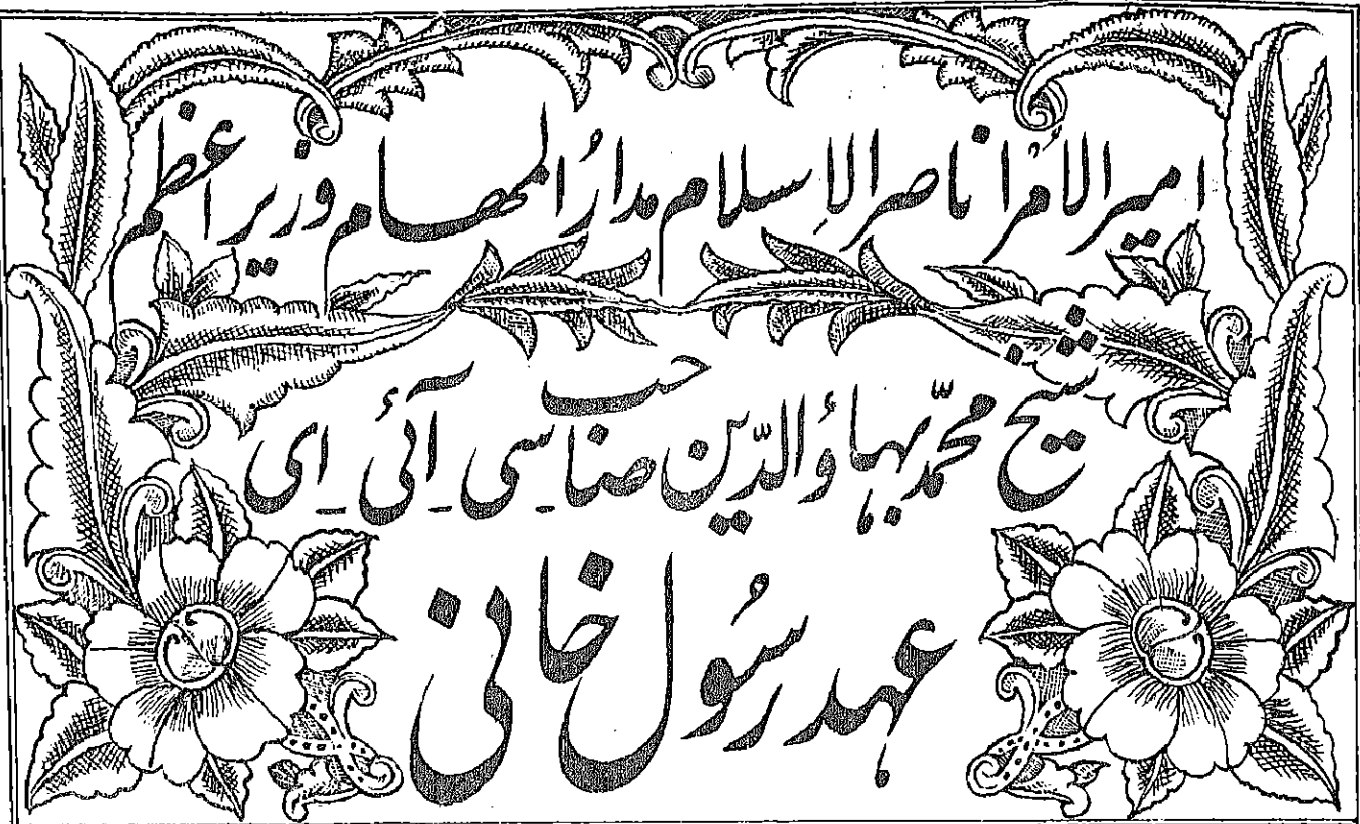 امیر الاُمرا ناصر الاِسلام مدارُ المہام وزیر اعظم
شیخ محمّد بہاؤ الدّین صاحب سِی ۔ آئی ۔ اِی
عہد رسُول خانی